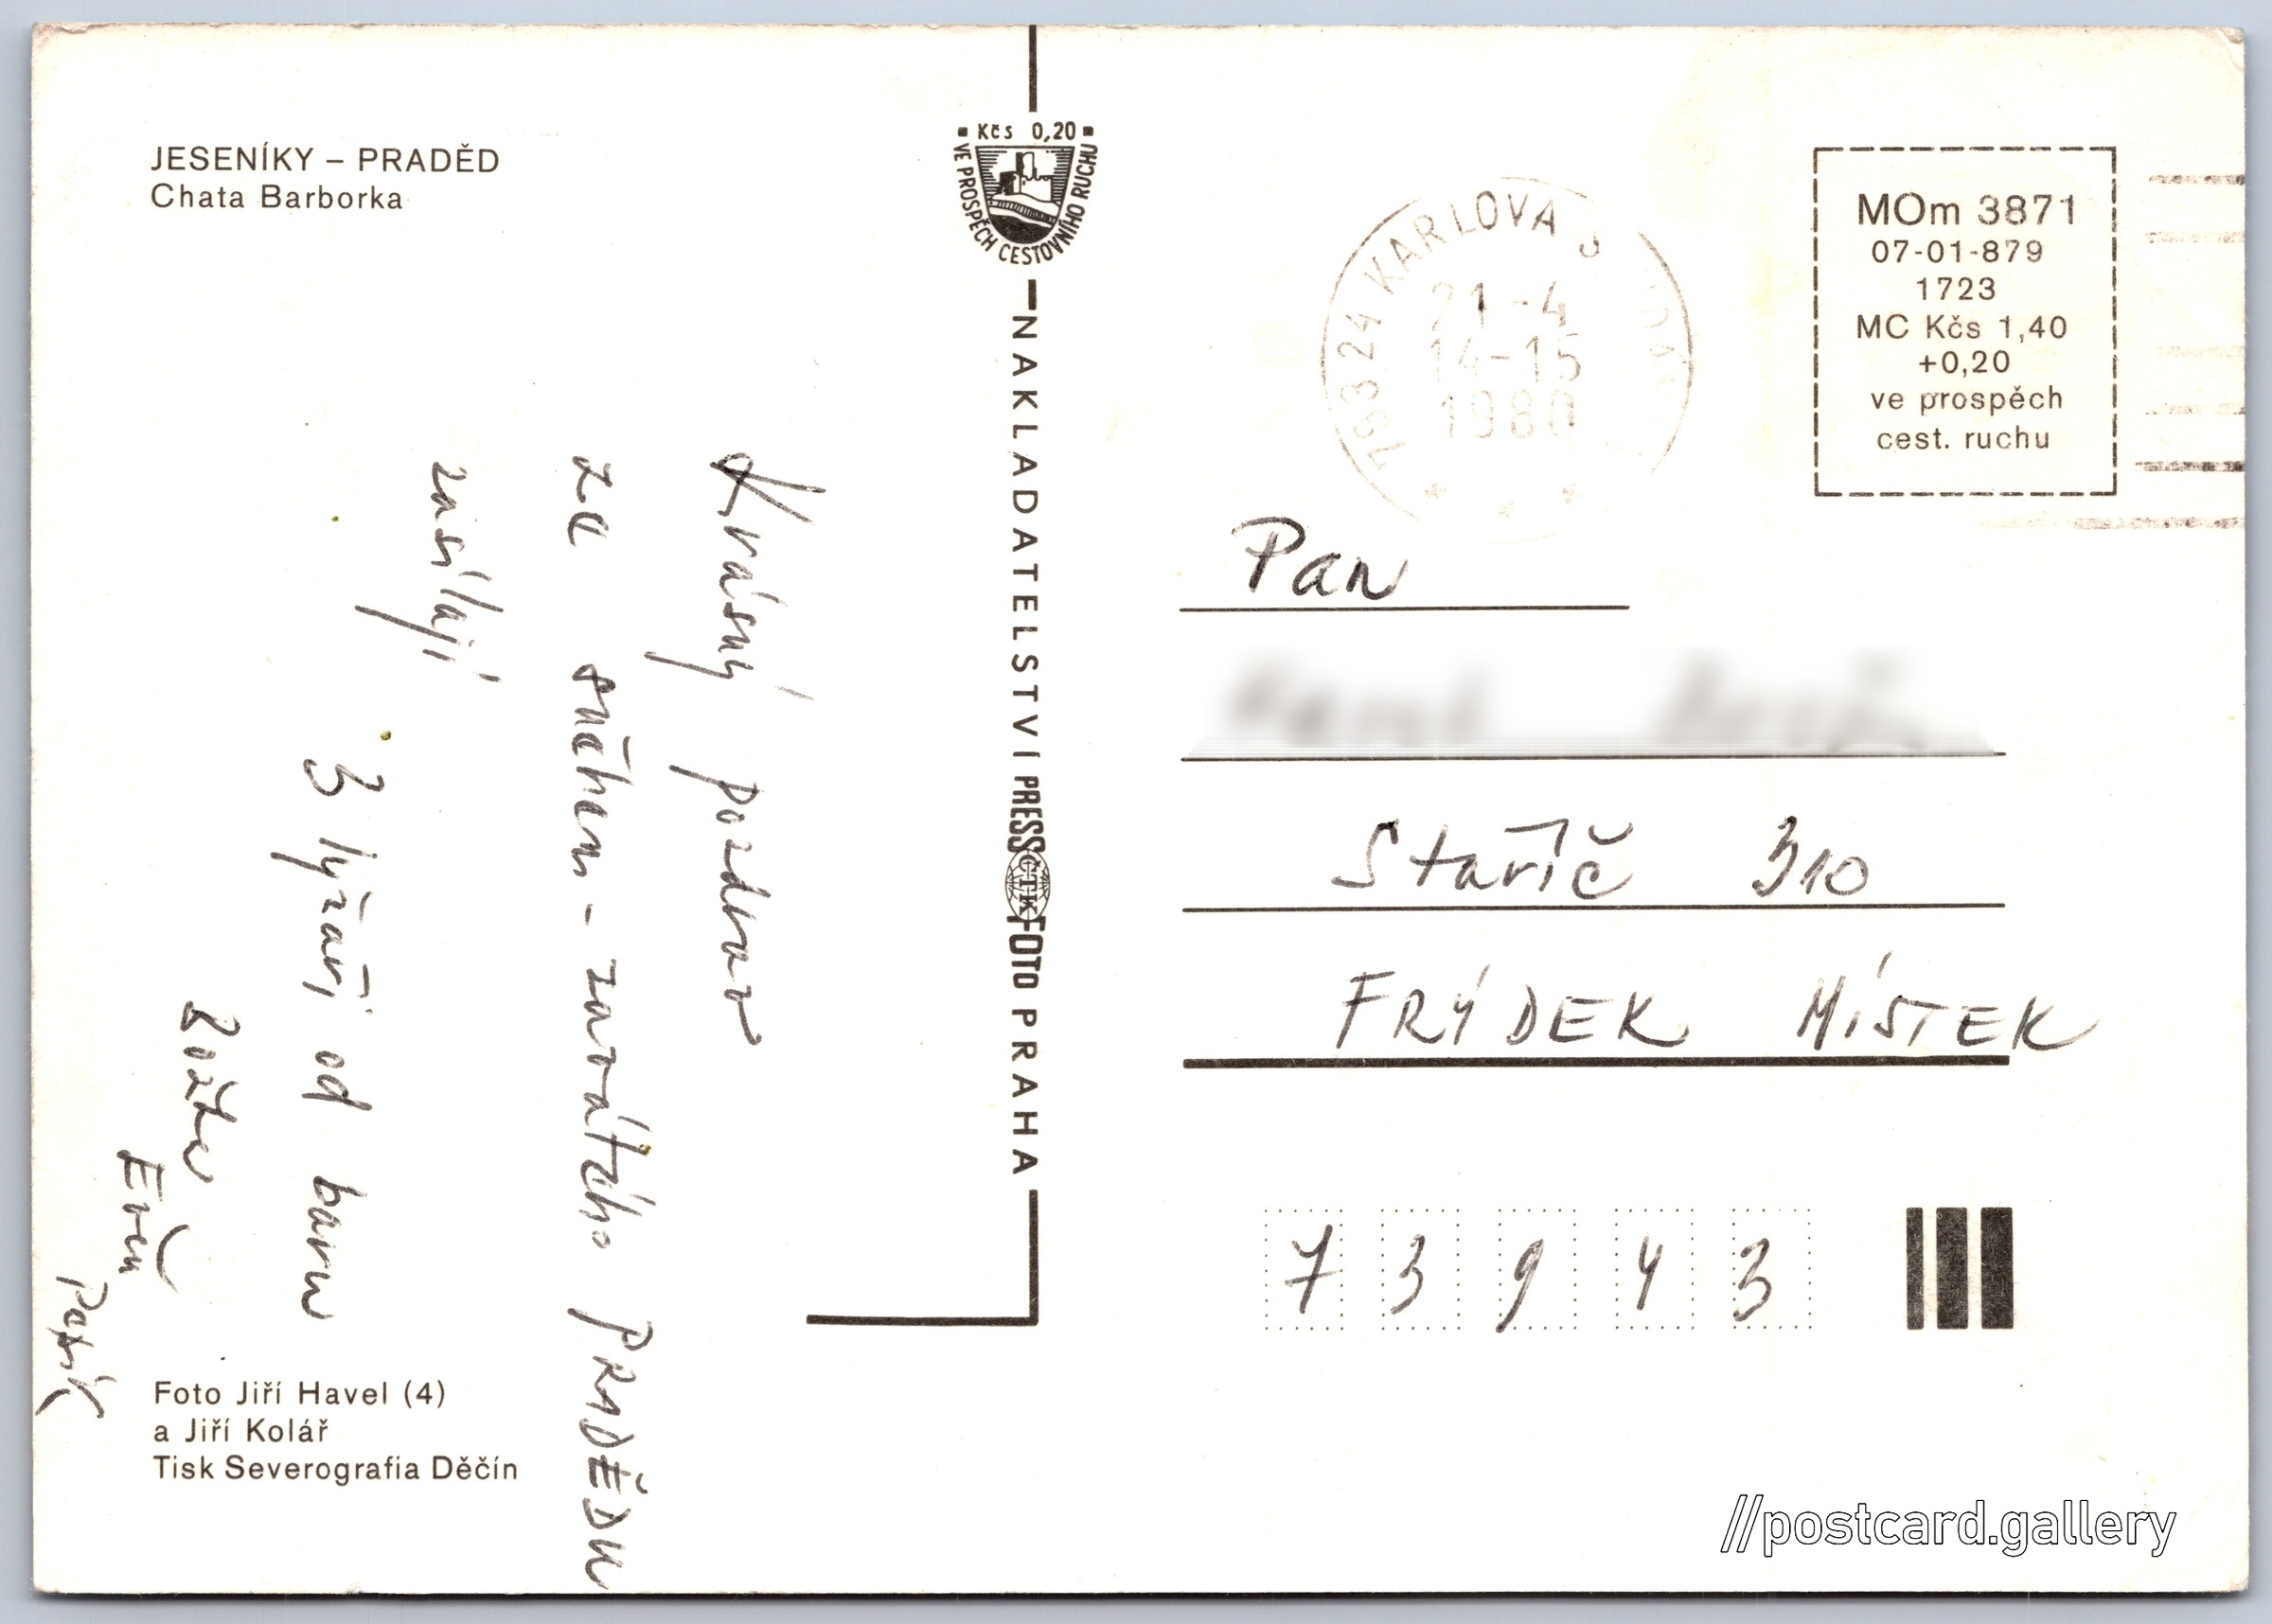 JESENÍKY – PRADĚD
Chata Barborka
Krásný pozdrav
ze sněhem - zavátého PRADĚDU
zasílají
3 lyžaři od baru
Evču
Patrik
Foto Jiří Havel (4)
a Jiří Kolář
Tisk Severografia Děčín
Kčs 0,20
VE PROSPĚCH CESTOVNÍHO RUCHU
NAKLADATELSTVÍ PRESSFOTO PRAHA
ČTK
793 24 KARLOVA S
21-4
14-15
1980
MOm 3871
07-01-879
1723
MC Kčs 1,40
+0,20
ve prospěch
cest. ruchu
Pan
Staříč 310
FRÝDEK MÍSTEK
73943
//postcard.gallery